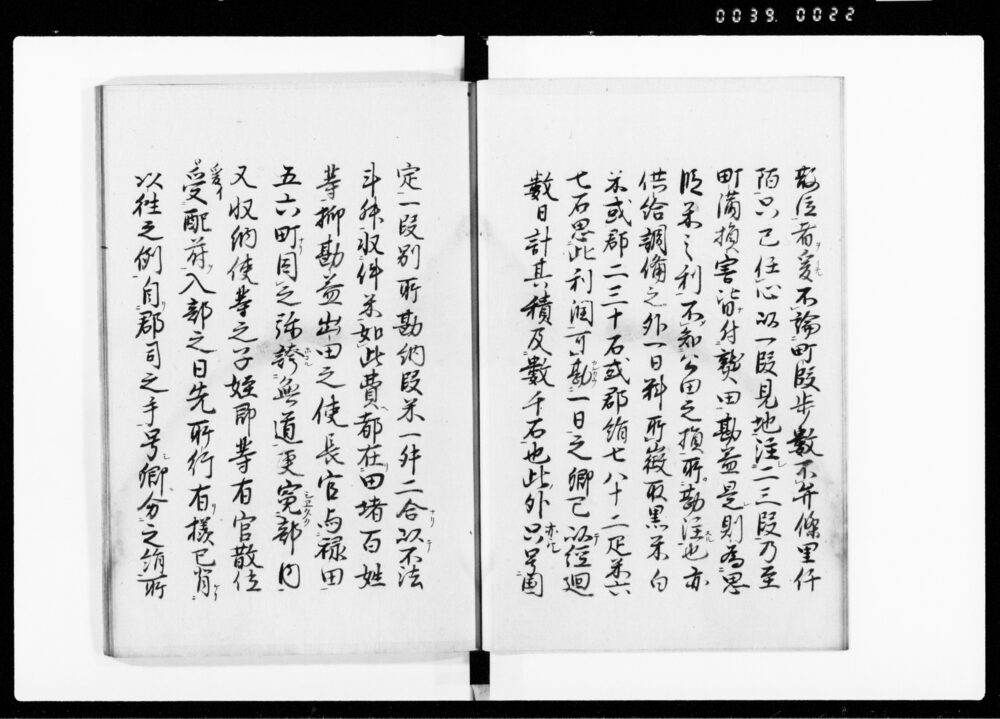 0039. 0022
散位者爰不論町段歩数不弁條里仟
陌只已任心以一段見地注二三段乃至
町満損害皆付熟田勘益是則為思
段米之利不知公田之損所勘注也亦
供給調備之外一日料所徴取黒米白
米或郡二三十石或郡絹七八十二疋米六
七石思此利潤可勘一日之郷已以経廻
数日計其積及数千石也此外只号圖
定一段別所勘納段米一斗二合以不法
斗升収件米如此費都在田堵百姓
等抑勘益出田之使長官与禄田
五六町因之弥誇無道更寃部内
又収納使等之子姪郎等有官散位
受配符入部之日先所行有様已背
以往之例自郡司之手号郷分之絹所